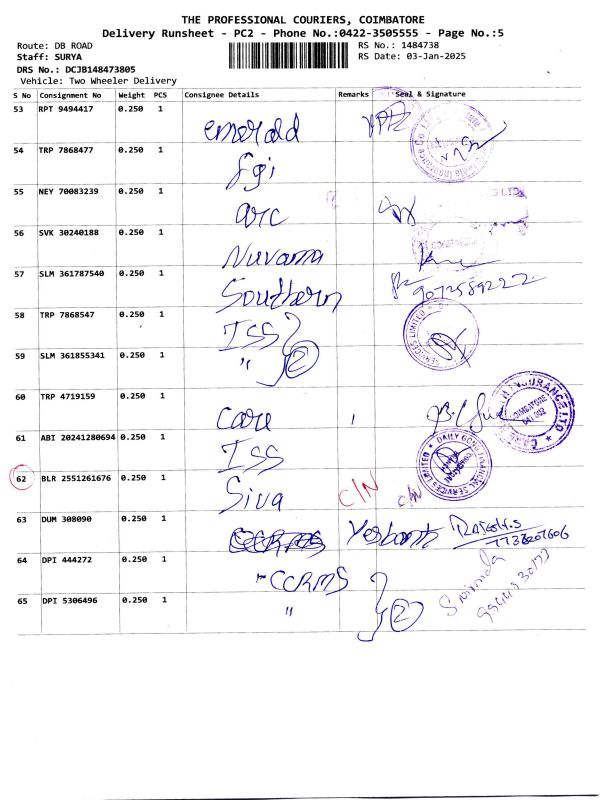 THE PROFESSIONAL COURIERS, COIMBATORE
Delivery Runsheet - PC2 - Phone No.:0422-3505555 - Page No.:5
Route: DB ROAD
RS No.: 1484738
Staff: SURYA
RS Date: 03-Jan-2025
DRS No.: DCJB148473805
Vehicle: Two Wheeler Delivery
S No Consignment No Weight PCS Consignee Details Remarks Seal & Signature
53 RPT 9494417 0.250 1 emerald
54 TRP 7868477 0.250 1 fgi
55 NEY 70083239 0.250 1 arc
56 SVK 30240188 0.250 1 Nuvama
57 SLM 361787540 0.250 1 Southern 9072589222
58 TRP 7868547 0.250 1 ISS
59 SLM 361855341 0.250 1 " 2
60 TRP 4719159 0.250 1 Care
61 ABI 20241280694 0.250 1 ISS
62 BLR 2551261676 0.250 1 Siva C/N C/N
63 DUM 308090 0.250 1
64 DPI 444272 0.250 1 CCRMS
65 DPI 5306496 0.250 1 " 2